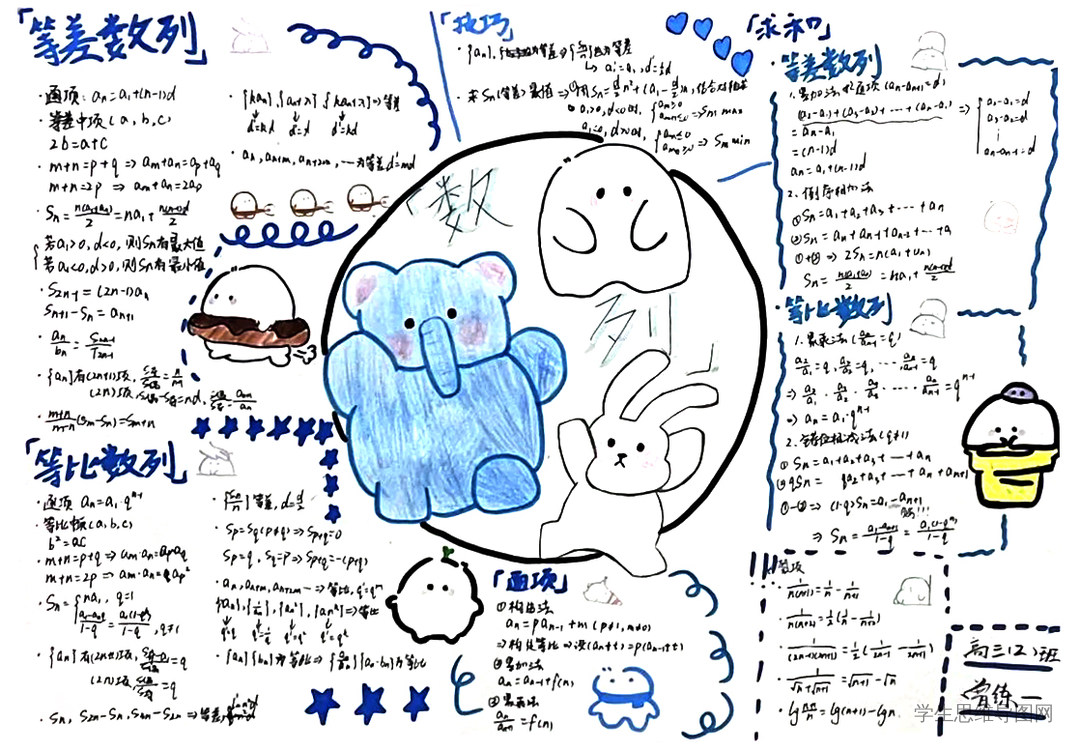 「等差数列」
· 通项: an=a1+(n-1)d
· 等差中项(a,b,c)
2b=a+c
· m+n=p+q ⇒ am+an=ap+aq
m+n=2p ⇒ am+an=2ap
· Sn=n(a1+an)/2=na1+n(n-1)d/2
若a1>0,d<0,则Sn有最大值
若a1<0,d>0,则Sn有最小值
· S2n-1=(2n-1)an
Sn+1-Sn=an+1
· an/bn=S2n-1/T2n-1
· {an}有(2n+1)项,
(2n)项,
· m+n/m-n(Sm-Sn)=Sm+n
· {kan},{an+λ},{kan+λ}⇒等差
d'=kd d'=d d'=kd
· an,an+m,an+2m,…为等差d'=md
「等比数列」
· 通项 an=a1·qⁿ⁻¹
· 等比中项(a,b,c)
b²=ac
· m+n=p+q ⇒ am·an=ap·aq
m+n=2p ⇒ am·an=ap²
· Sn={na1, q=1
a1-anq/1-q=a1(1-qⁿ)/1-q, q≠1
· {an}有(2n+1)项, =q
(2n)项, S偶/S奇=q
· Sn, S2n-Sn, S3n-S2n ⇒
· {Sn/n}等差, d'=d/2
· Sp=Sq(p≠q)⇒Sp+q=0
Sp=q, Sq=p⇒Sp+q=-(p+q)
· an,an+m,an+2m…⇒等比,q'=qᵐ
· {an}{bn}为等比⇒{an/bn}{an·bn}为等比
「技巧」
求Sn(等差)最值⇒①用Sn=d/2n²+(a1-d/2)n,结合对称轴
② a1>0,d<0时, {an≥0 an+1≤0 ⇒Sn max
a1<0,d>0时, {an≤0 an+1≥0 ⇒Sn min
「数
列」
「通项」
①构造法
an=pan-1+m(p≠1,m≠0)
⇒构造等比⇒设(an+t)=p(an-1+t)
②累加法
an=an-1+f(n)
③累乘法
=f(n)
「求和」
· 等差数列
1.累加法求通项(an-an-1=d)
(a2-a1)+(a3-a2)+…+(an-an-1) ⇒ {a2-a1=d
a3-a2=d
⋮
an-an-1=d
=an-a1
=(n-1)d
an=a1+(n-1)d
2.倒序相加法
①Sn=a1+a2+a3+…+an
②Sn=an+an-1+an-2+…+a1
①+②⇒2Sn=n(a1+an)
Sn=n(a1+an)/2=na1+n(n-1)d/2
· 等比数列
1.累乘法(an/an-1=q)
a2/a1=q,a3/a2=q,…an/an-1=q
⇒a2/a1·a3/a2·a4/a3·…·an/an-1=qⁿ⁻¹
⇒an=a1·qⁿ⁻¹
2.错位相减法(q≠1)
①Sn=a1+a2+a3+…+an
②qSn= a2+a3+…+an+an+1
①-②⇒(1-q)Sn=a1-an+1
⇒Sn=a1-an+1/1-q=a1(1-qⁿ)/1-q
· 1/n(n+1)=1/n-1/n+1
· 1/n(n+2)=1/2(1/n-1/n+2)
· 1/(2n-1)(2n+1)=1/2(1/2n-1-1/2n+1)
· 1/√n+√n+1=√n+1-√n
· lg n+1/n=lg(n+1)-lgn
高三(2)班
学生思维导图网